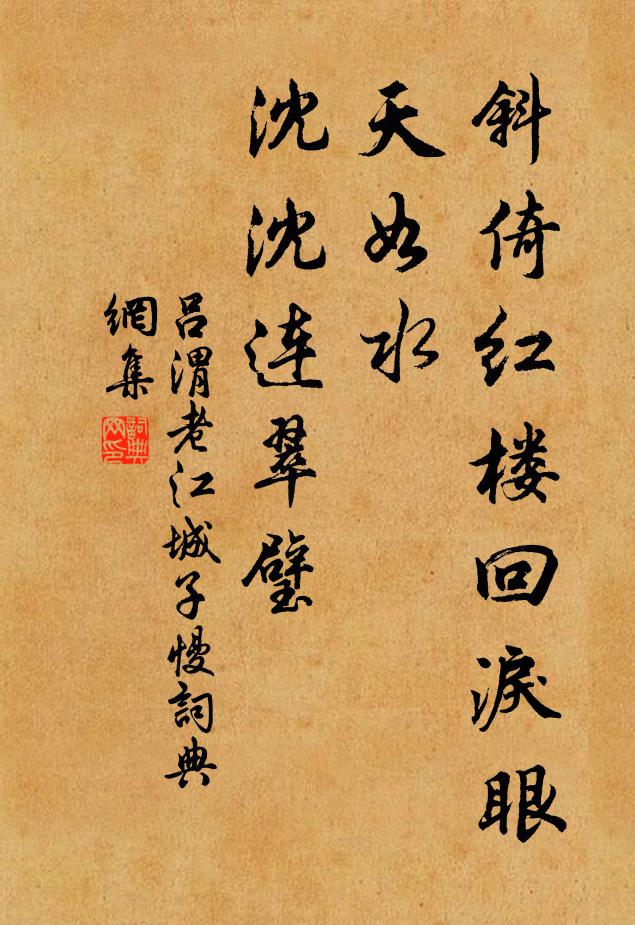 斜倚红楼回淚眼
天如水
沈沈连翠璧
吕渭老江城子慢詞典
網集
詞典网印